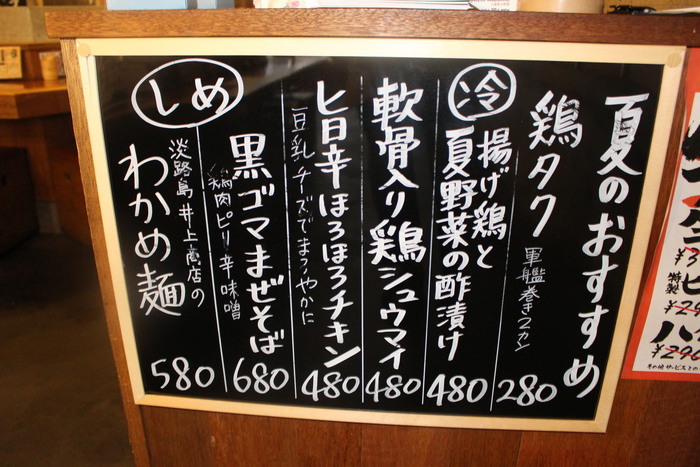 夏のおすすめ
鶏タク
軍艦巻き2カン
280
冷
揚げ鶏と
夏野菜の酢漬け
480
軟骨入り鶏シュウマイ
480
旨辛ほろほろチキン
豆乳チーズでまろやかに
480
しめ
黒ゴマまぜそば
鶏肉ピリ辛味噌
680
淡路島井上商店の
わかめ麺
580
特製
¥290